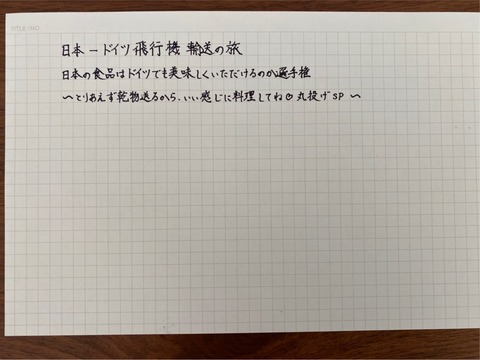 TITLE / NO
日本 － ドイツ 飛行機 輸送の旅
日本の食品はドイツでも美味しくいただけるのか選手権
〜とりあえず乾物送るから、いい感じに料理してね♡丸投げSP 〜